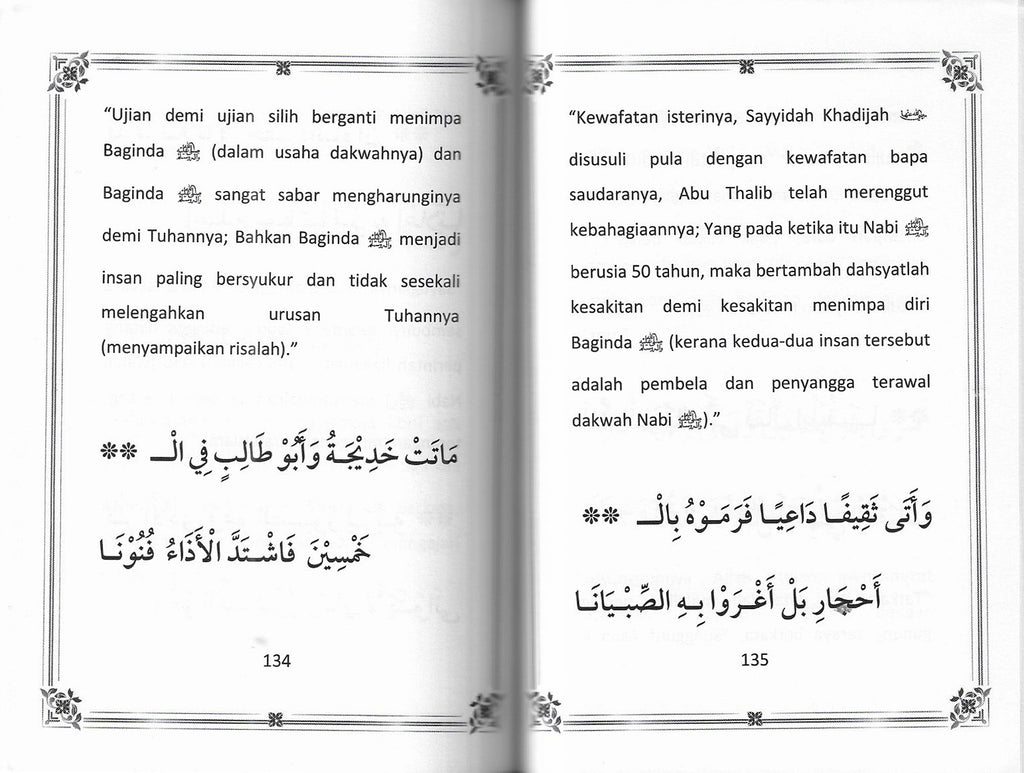 “Ujian demi ujian silih berganti menimpa
Baginda ﷺ (dalam usaha dakwahnya) dan
Baginda ﷺ sangat sabar mengharunginya
demi Tuhannya; Bahkan Baginda ﷺ menjadi
insan paling bersyukur dan tidak sesekali
melengahkan urusan Tuhannya
(menyampaikan risalah).”
مَاتَتْ خَدِيْجَةُ وَأَبُوْ طَالِبٍ فِي الْـ **
خَمْسِيْنَ فَاشْتَدَّ الْأَذَاءُ فُنُوْنَا
134
“Kewafatan isterinya, Sayyidah Khadijah
disusuli pula dengan kewafatan bapa
saudaranya, Abu Thalib telah merenggut
kebahagiaannya; Yang pada ketika itu Nabi ﷺ
berusia 50 tahun, maka bertambah dahsyatlah
kesakitan demi kesakitan menimpa diri
Baginda ﷺ (kerana kedua-dua insan tersebut
adalah pembela dan penyangga terawal
dakwah Nabi ﷺ).”
وَأَتَى ثَقِيفًا دَاعِيًا فَرَمَوْهُ بِالْـ **
أَحْجَارِ بَلْ أَغْرَوْا بِهِ الصِّبْيَانَا
135